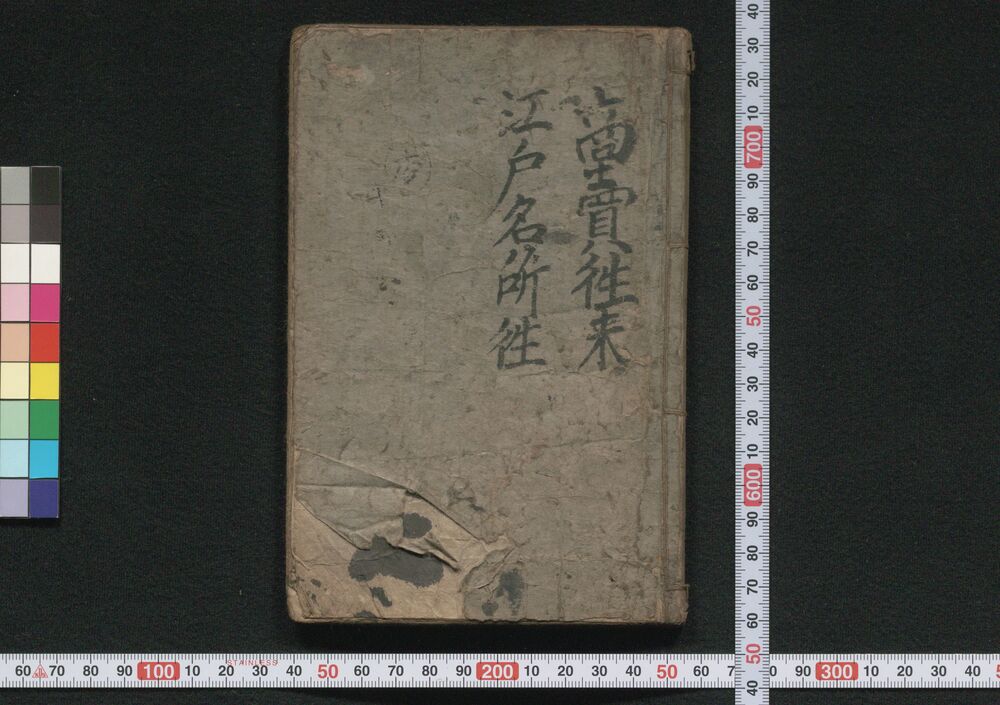 商賣徃来
江戸名所徃
40 30 20 10 700 90 80 70 60 50 40 30 20 10 600 90 80 70 60 50 40
60 70 80 90 100 10 20 30 40 50 60 70 80 90 200 10 20 30 40 50 60 90 300 10 20 30 40
STAINLESS